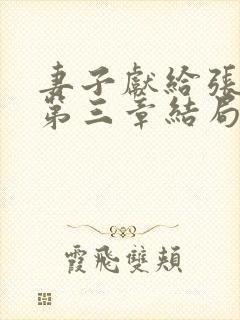 妻子獻給張
第三章結局
霞飛雙頰